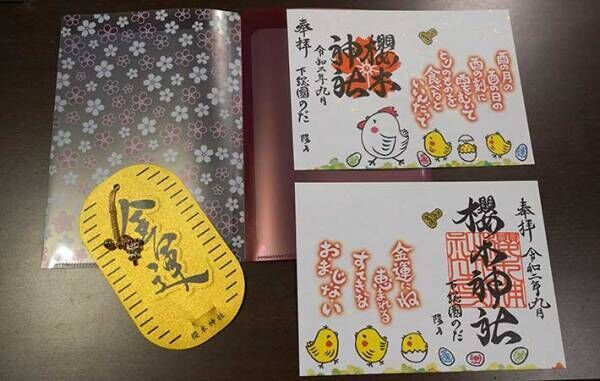 奉拝
令和二年九月
櫻木
神社
下総國のだ
酉の月の
酉の日の
酉の刻に
酉をむいて
とりのものを
食べると
いいんだって
奉拝
令和二年九月
櫻木神社
下総國のだ
金運にね
恵まれる
すてきな
おまじない
金運
櫻木神社